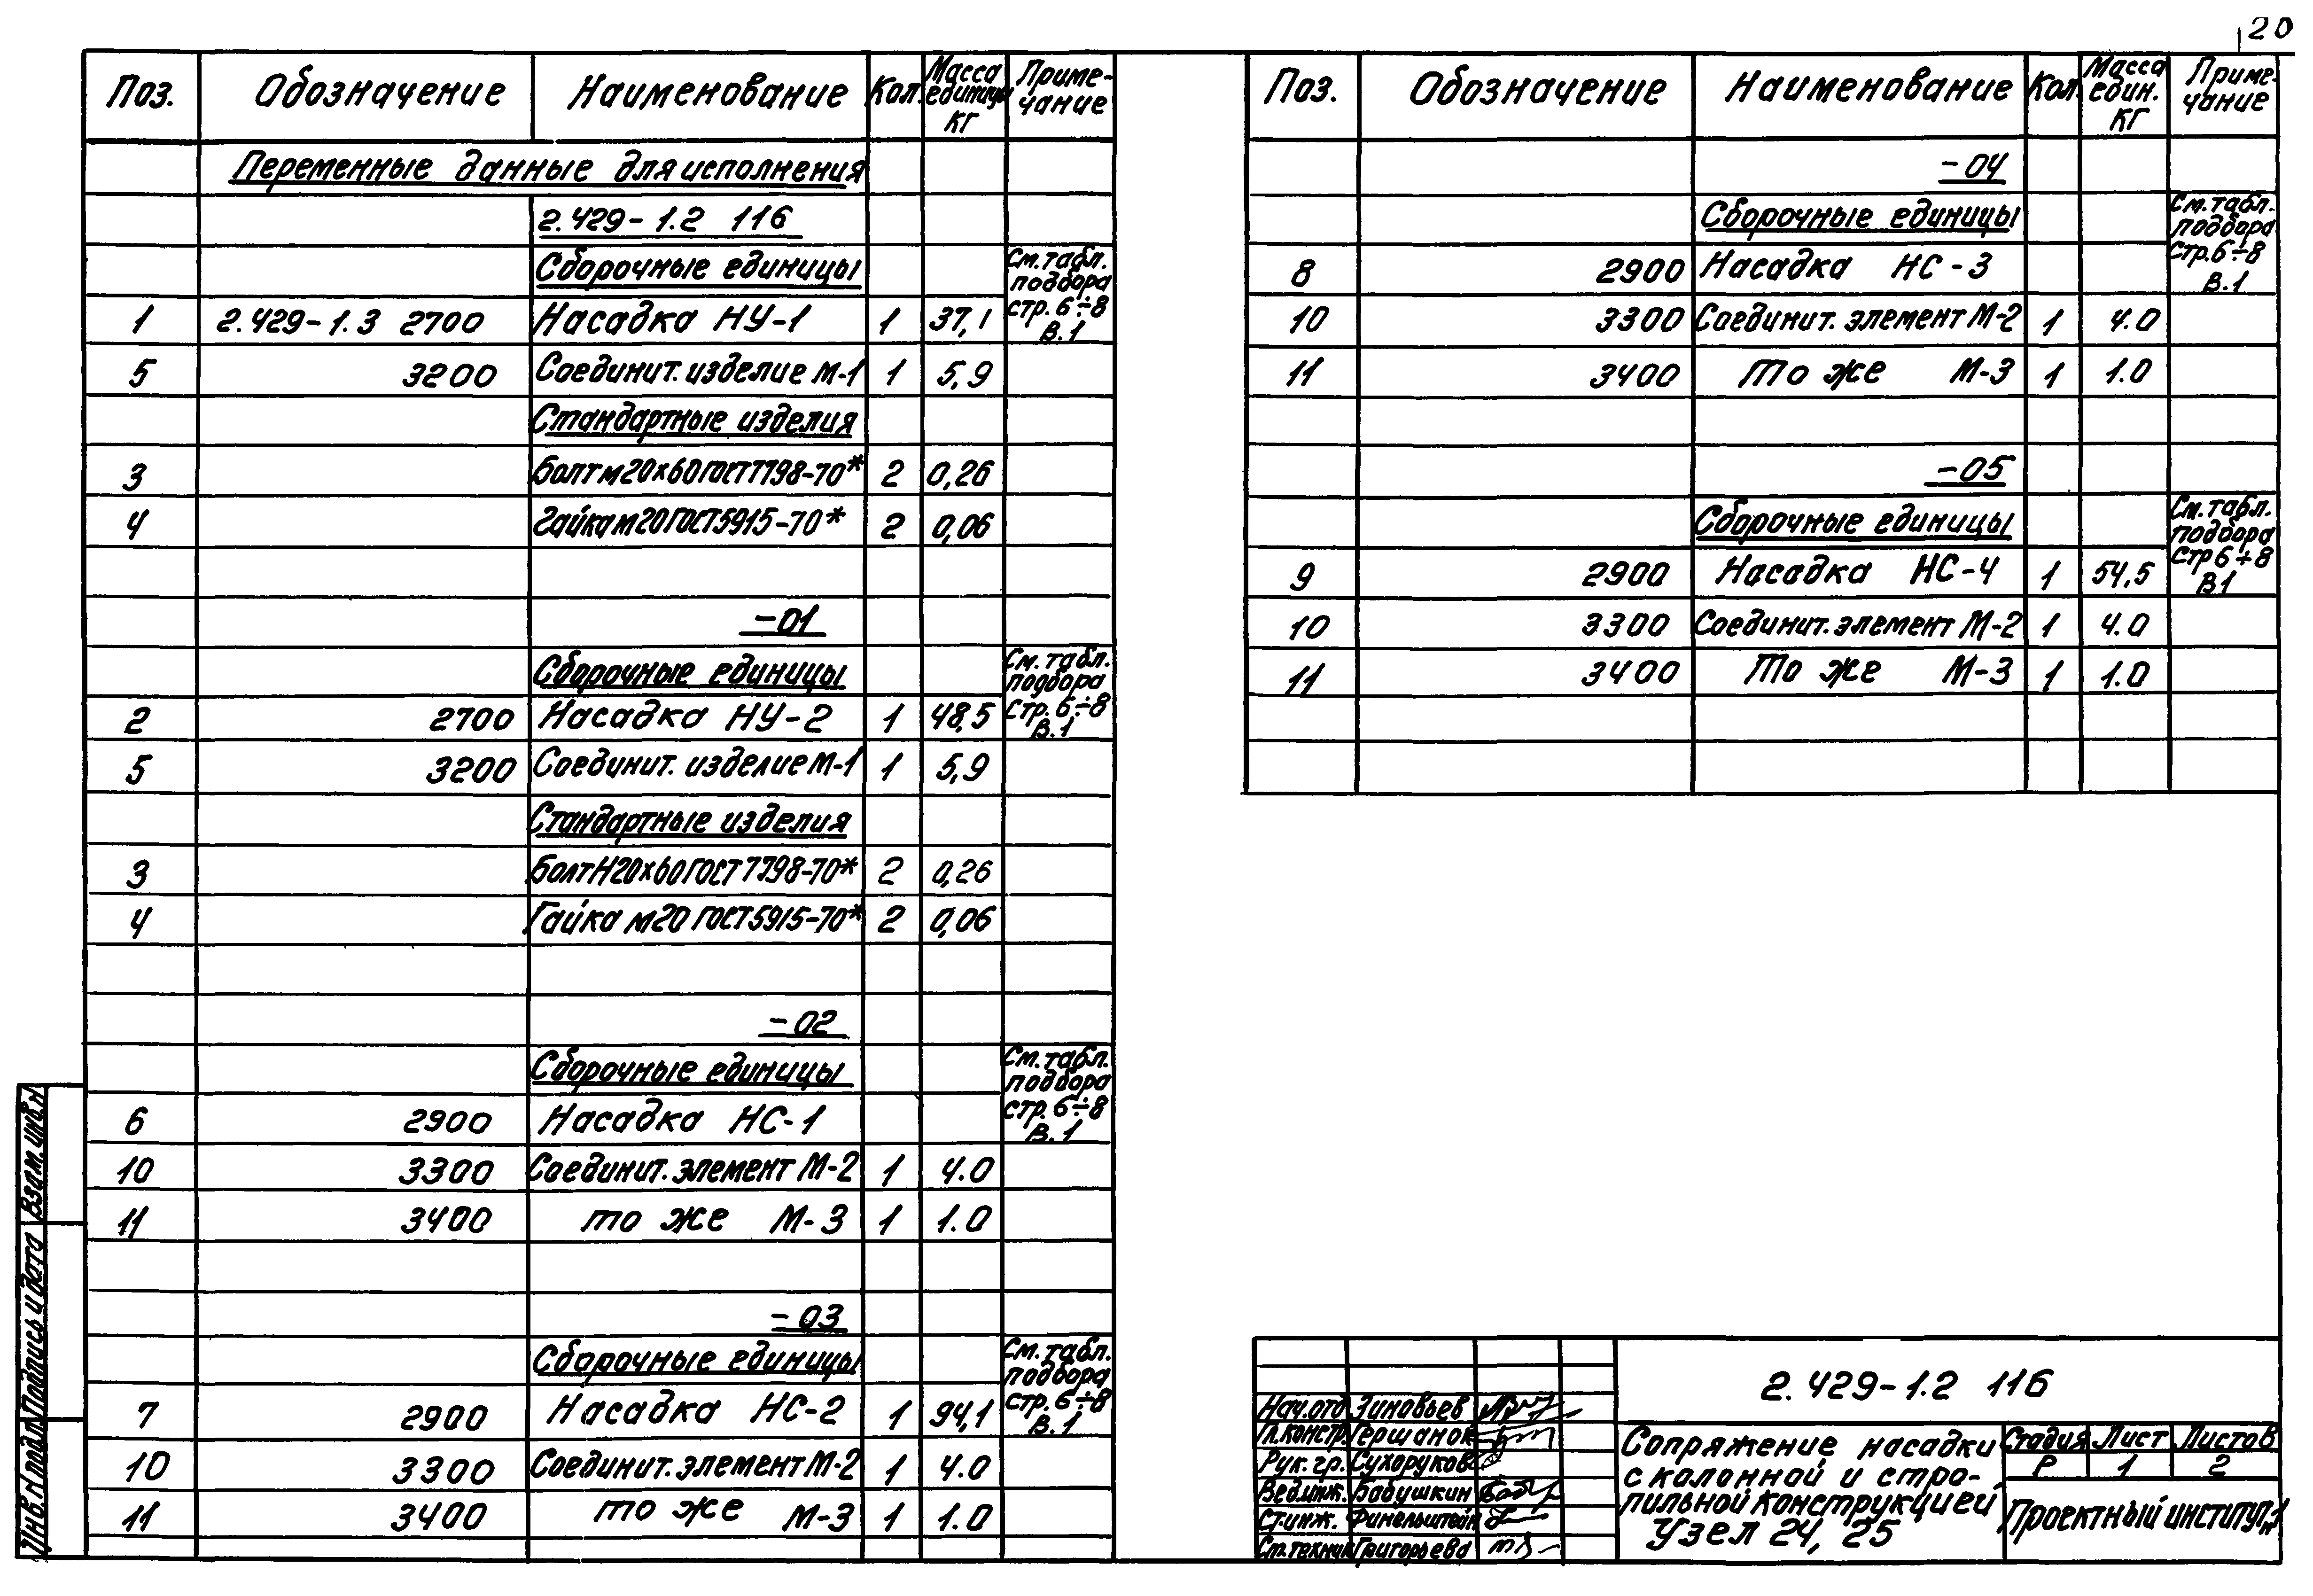 20
Поз. Обозначение Наименование Кол. Масса единицы кг Приме-чание
Переменные данные для исполнения
2.429-1.2 116
Сборочные единицы См. табл. подбора стр. 6÷8 В.1
1 2.429-1.3 2700 Насадка НУ-1 1 37,1
5 3200 Соединит. изделие М-1 1 5,9
Стандартные изделия
3 Болт М20х60 ГОСТ 7798-70* 2 0,26
4 Гайка М20 ГОСТ 5915-70* 2 0,06
-01
Сборочные единицы См. табл. подбора стр. 6÷8 В.1
2 2700 Насадка НУ-2 1 48,5
5 3200 Соединит. изделие М-1 1 5,9
Стандартные изделия
3 Болт М20х60 ГОСТ 7798-70* 2 0,26
4 Гайка М20 ГОСТ 5915-70* 2 0,06
-02
Сборочные единицы См. табл. подбора стр. 6÷8 В.1
6 2900 Насадка НС-1
10 3300 Соединит. элемент М-2 1 4.0
11 3400 то же М-3 1 1.0
-03
Сборочные единицы См. табл. подбора стр. 6÷8 В.1
7 2900 Насадка НС-2 1 94,1
10 3300 Соединит. элемент М-2 1 4.0
11 3400 то же М-3 1 1.0
Поз. Обозначение Наименование Кол. Масса един. кг Приме-чание
-04
Сборочные единицы См. табл. подбора стр. 6÷8 В.1
8 2900 Насадка НС-3
10 3300 Соединит. элемент М-2 1 4.0
11 3400 то же М-3 1 1.0
-05
Сборочные единицы См. табл. подбора стр 6÷8 В1
9 2900 Насадка НС-4 1 54,5
10 3300 Соединит. элемент М-2 1 4.0
11 3400 То же М-3 1 1.0
Инв. N подл. Подпись и дата Взам. инв. N
Нач. отд Зиновьев
Гл. констр. Гершанок
Рук. гр. Сухоруков
Вед. инж. Бабушкин
Ст. инж. Финельштейн
Ст. техник Григорьева
2.429-1.2 116
Сопряжение насадки
с колонной и стро-
пильной конструкцией
Узел 24, 25
Стадия Лист Листов
Р 1 2
Проектный институт N1